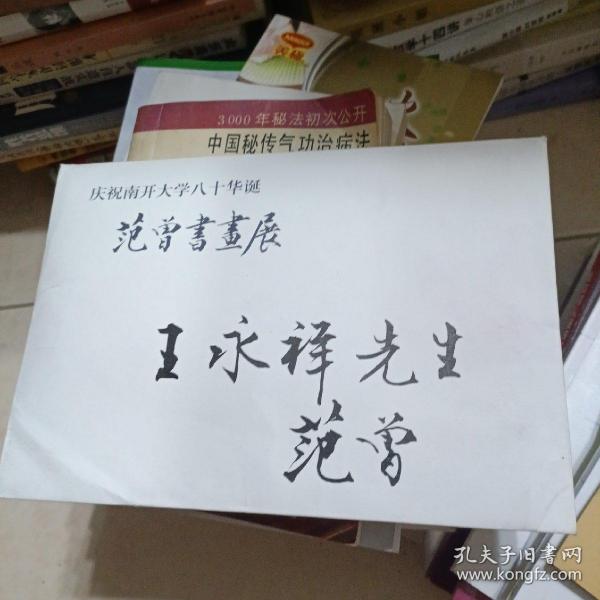 3000年秘法初次公开
中国秘传气功治病法
庆祝南开大学八十华诞
范曾書畫展
王永祥先生
范曾
孔夫子旧书网
www.kongfz.com